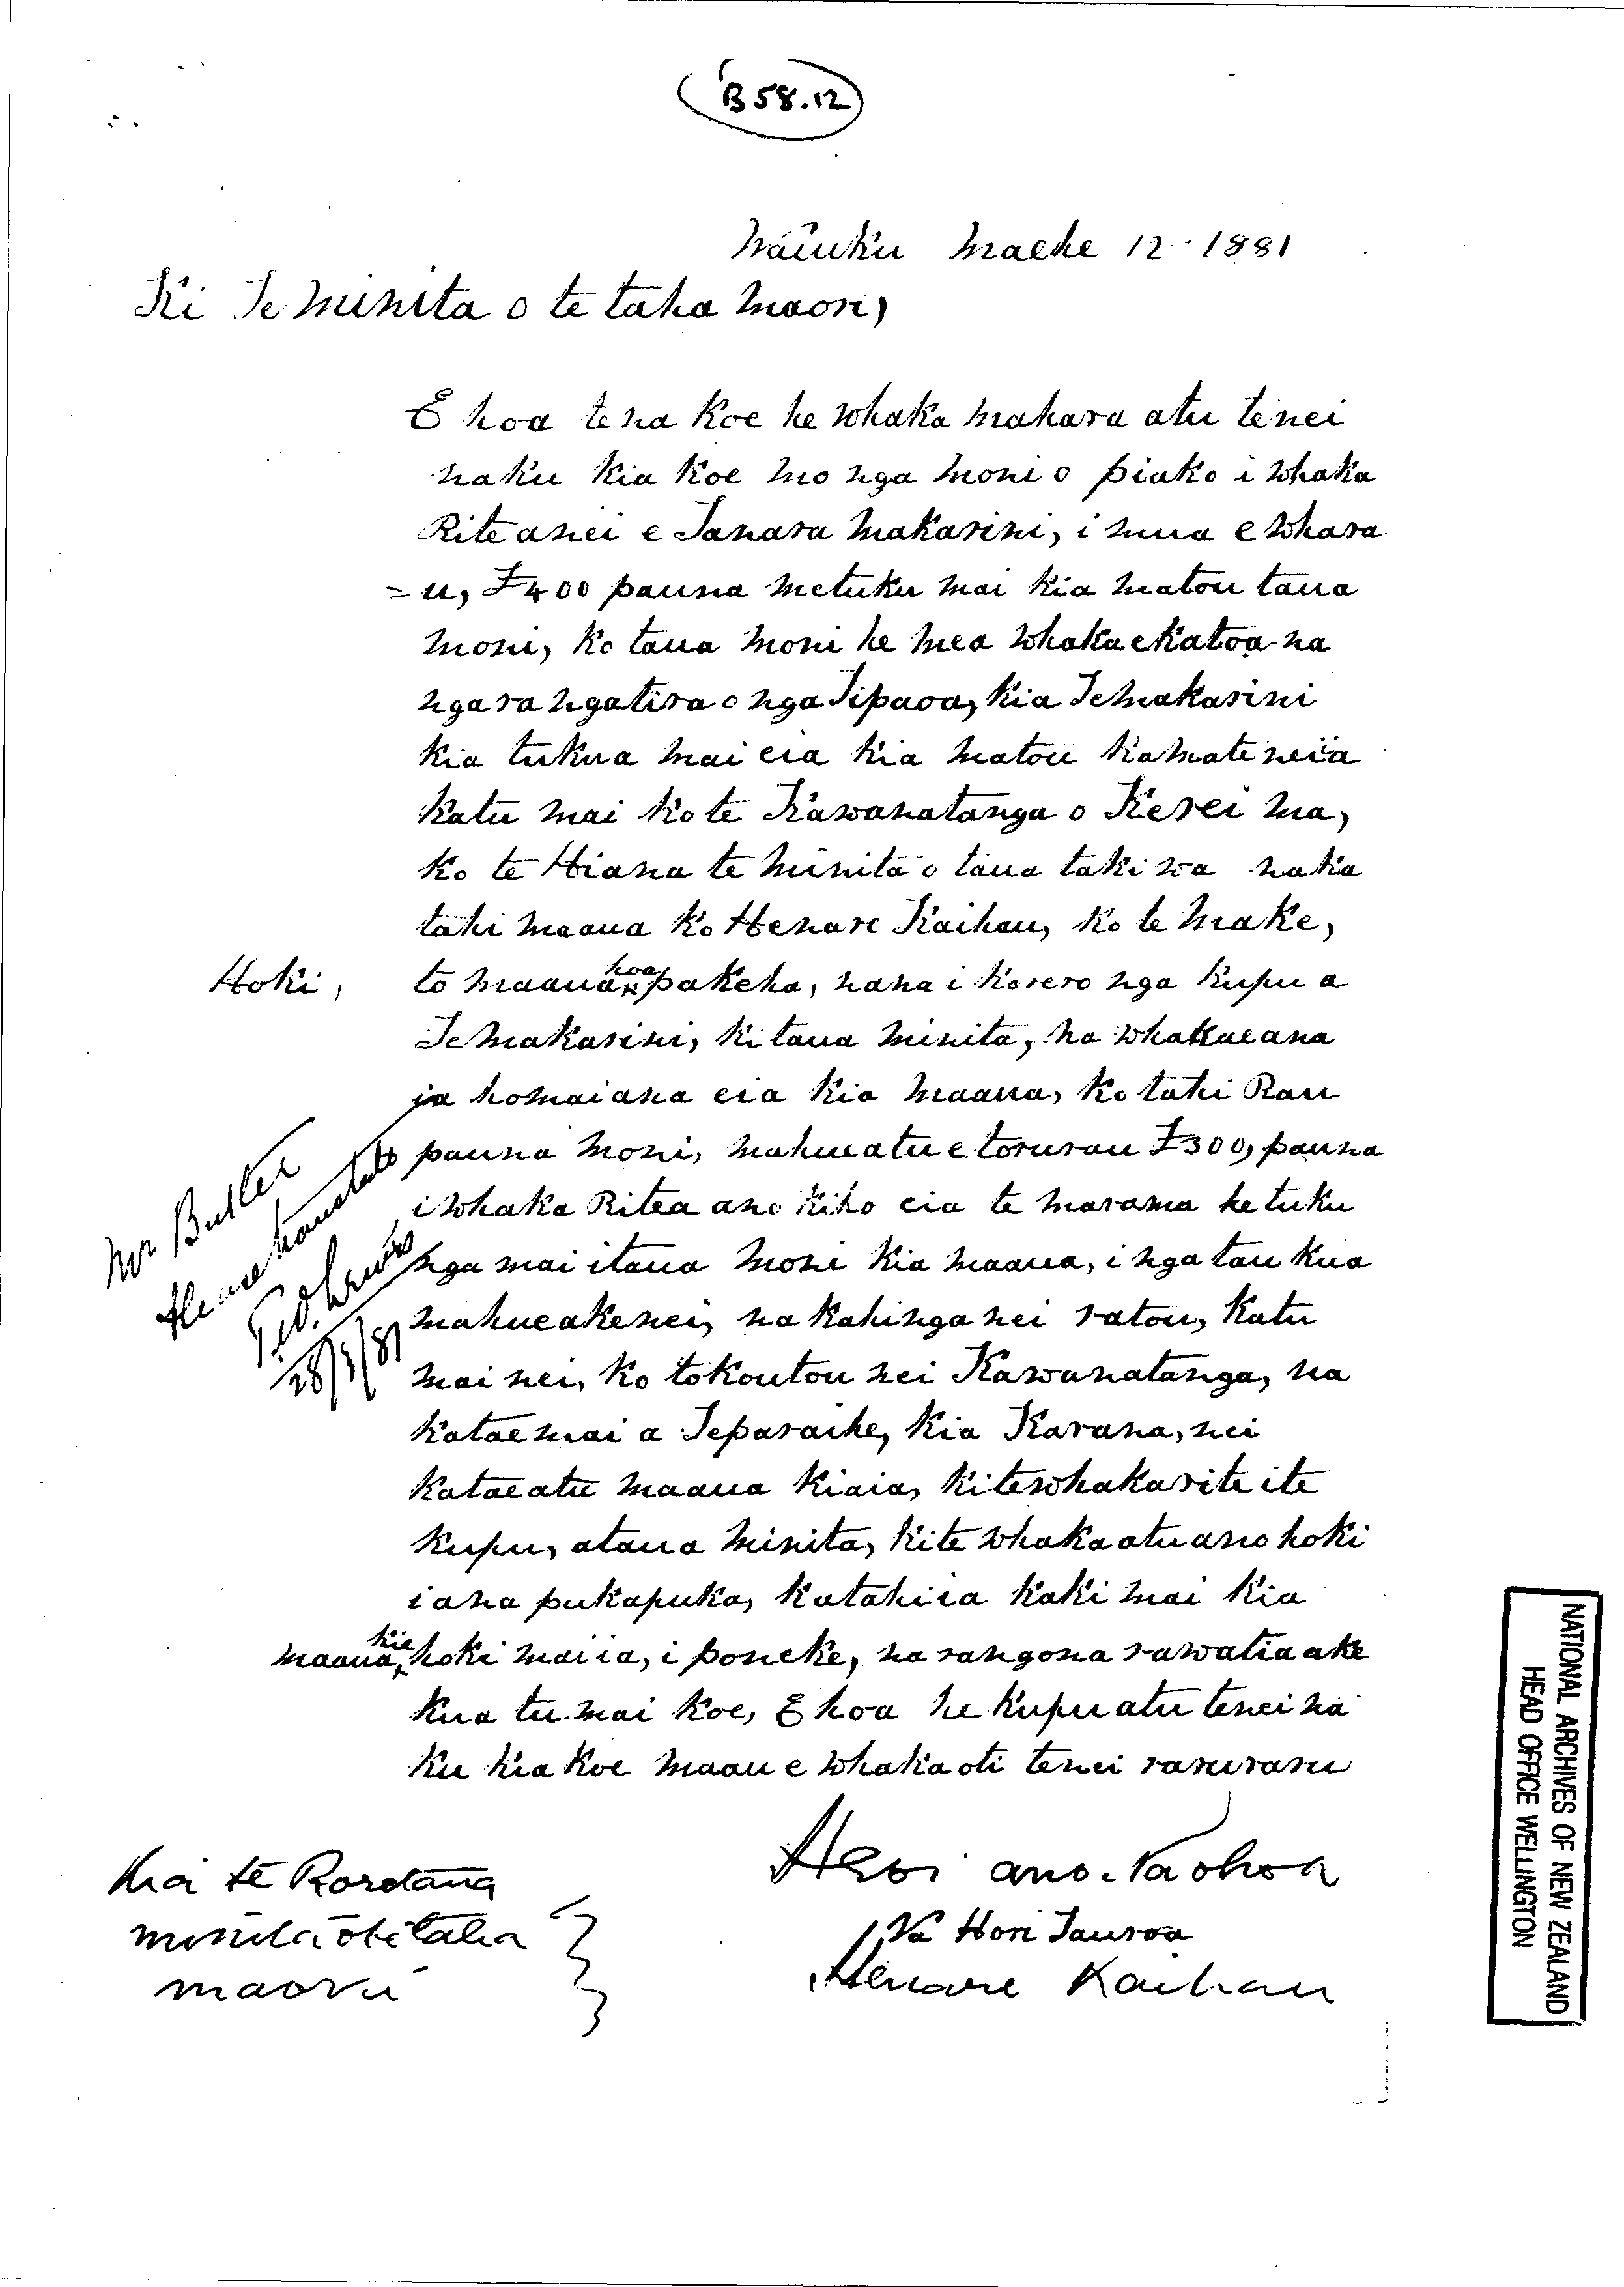 B 58.12
Waiuku Maehe 12 - 1881
Ki Te Minita o te taha Maori,
E hoa tena Koe he Whaka mahara atu tenei
naku Kia Koe mo nga moni o piako i Whaka
Rite anei e Tanara Makarini, i mua e Whara
= u, £400 pauna metuku mai Kia matou taua
moni, Ko taua moni he mea Whakaekatoa na
nga ra ngatira o nga Tipaoa, Kia Temakarini
Kia tukua mai eia Kia matou Kamate neia
Katu mai Ko te Kawanatanga o Kerei ma,
Ko te Hiana te Minita o taua taki wa naKa
tahi maaua Ko Henare Kaihau, Ko te Make,
Hoki, to maaua hoa pakeha, nana i Korero nga Kupu a
Temakarini, Ki taua Minita, na Whakaaeana
ia homaiana eia Kia maaua, Ko tahi Rau
pauna moni, mahueatu e torurau £300, pauna
i Whaka Ritea ano Kiho eia te marama he tuku
nga mai itaua moni Kia maaua, i nga tau Kua
mahueakenei, na Kahinga nei ratou, Katu
mai nei, Ko tokoutou nei Kawanatanga, na
Kataemai a Teparaihe, Kia Karana, nei
Kataeatu maaua Kiaia, Kitewhakarite ite
Kupu, ataua Minita, Kite Whakaatu ano hoki
i ana pukapuka, Katahiia Kaki mai Kia
maaua, kia hoki mai ia, i poneke, na rangona rawatia ake
Kua tu mai Koe, E hoa he Kupu atu tenei na
Ku Kia Koe maau e Whakaoti tenei raruraru
Mr Butler
28/3/81
Heoi ano. Na o hoa
Na Hori Tauroa
Henare Kaihau
Kia te Rorotana
minita o te taha
maori
NATIONAL ARCHIVES OF NEW ZEALAND
HEAD OFFICE WELLINGTON